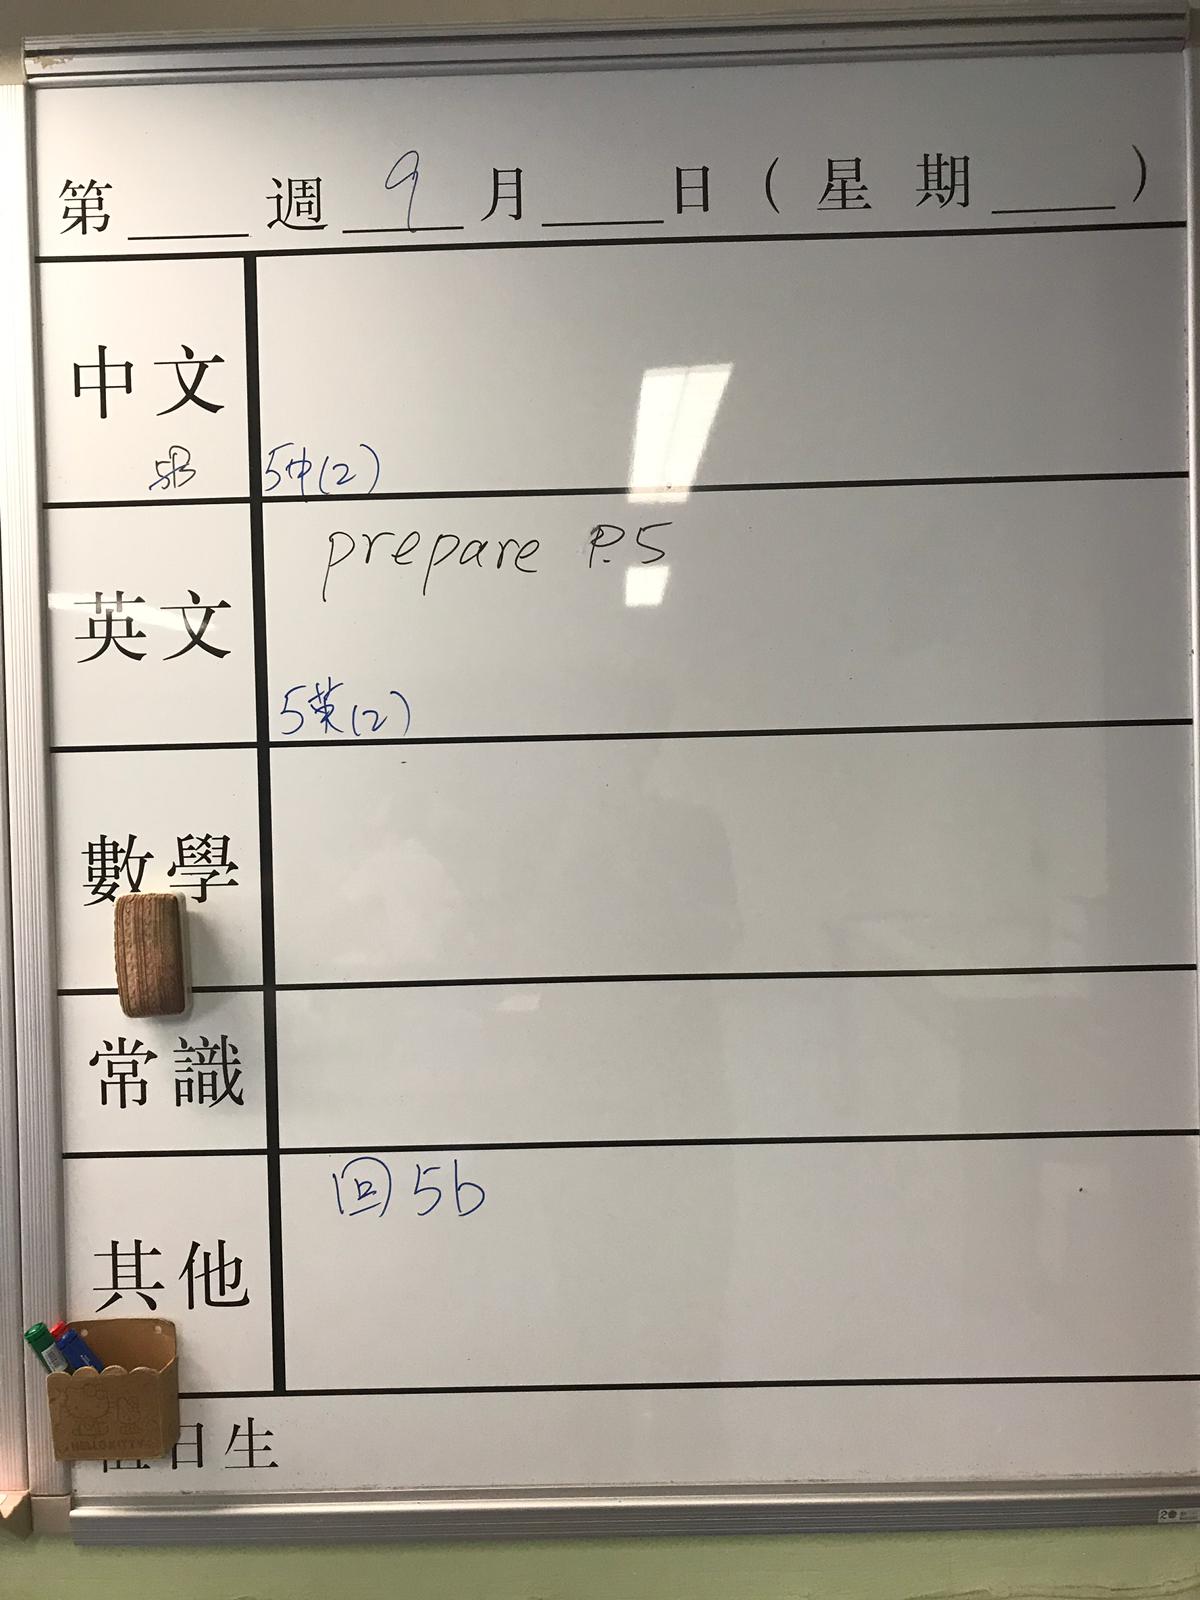 第____週 9 月____日(星期____)
中文
5B 5中(2)
prepare P.5
英文
5英(2)
數學
常識
回 5b
其他
HELLO KITTY
值日生